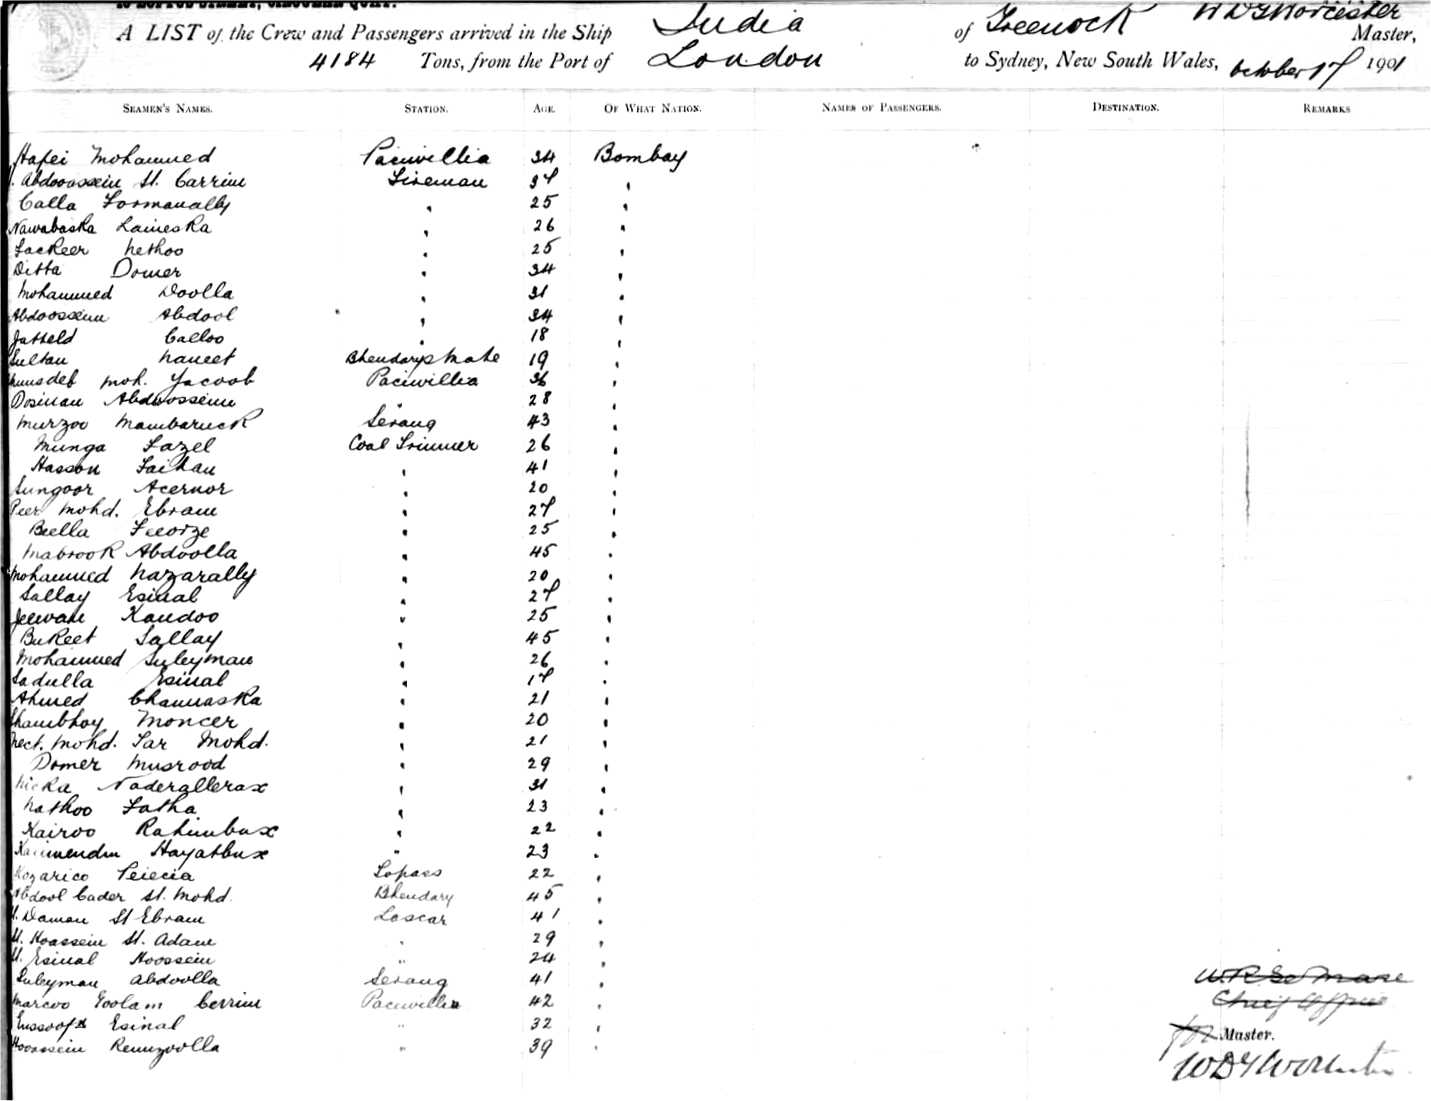 A LIST of the Crew and Passengers arrived in the Ship India of Greenock W D G Worcester Master,
4184 Tons, from the Port of London to Sydney, New South Wales, October 17 1901
SEAMEN'S NAMES. STATION. AGE. OF WHAT NATION. NAMES OF PASSENGERS. DESTINATION. REMARKS
Hafei Mohammed Paniwillia 34 Bombay
Abdoossein St. Carrim Fireman 37 "
Calla Formanally " 25 "
Nawabaska Laineska " 26 "
Fackeer Nethoo " 25 "
Ditta Domer " 34 "
Mohammed Doolla " 31 "
Abdoossein Abdool " 34 "
Calloo " 18 "
Sultan Naneet Bhendarys Mate 19 "
Moh. Yacoob Paniwillia 36 "
Dosinan Abdoossein " 28 "
Murzoo Mambaruck Serang 43 "
Munga Fazel Coal Trimmer 26 "
Hasson " 41 "
Sungoor Acernor " 20 "
Peer Mohd. Ebram " 27 "
Beella Feeorze " 25 "
Mabrook Abdoolla " 45 "
Mohammed Nazarally " 20 "
Sallay Esinal " 27 "
Jeewan Kandoo " 25 "
Bukeet Sallay " 45 "
Mohammed Suleyman " 26 "
Sadulla Esinal " 17 "
Ahmed Chamaska " 21 "
Shambhoy Moncer " 20 "
Mohd. Tar Mohd. " 21 "
Domer Musrood " 29 "
Naderallerax " 31 "
Nathoo Fatha " 23 "
Kairoo Rahimbux " 22 "
Hayatbux " 23 "
Topass 22 "
Abdool Cader St. Mohd. Bhendary 45 "
Damen St Ebram Lascar 41 "
St. Hoassein St. Adam " 29 "
Esinal Hoossein " 24 "
Suleyman Abdoolla Serang 41 "
Marcoo Goolam Cerrim Paniwillia 42 "
Esinal " 32 "
Hoossein Remzoolla " 39 "
Chief Officer
for Master.
W D G Worcester